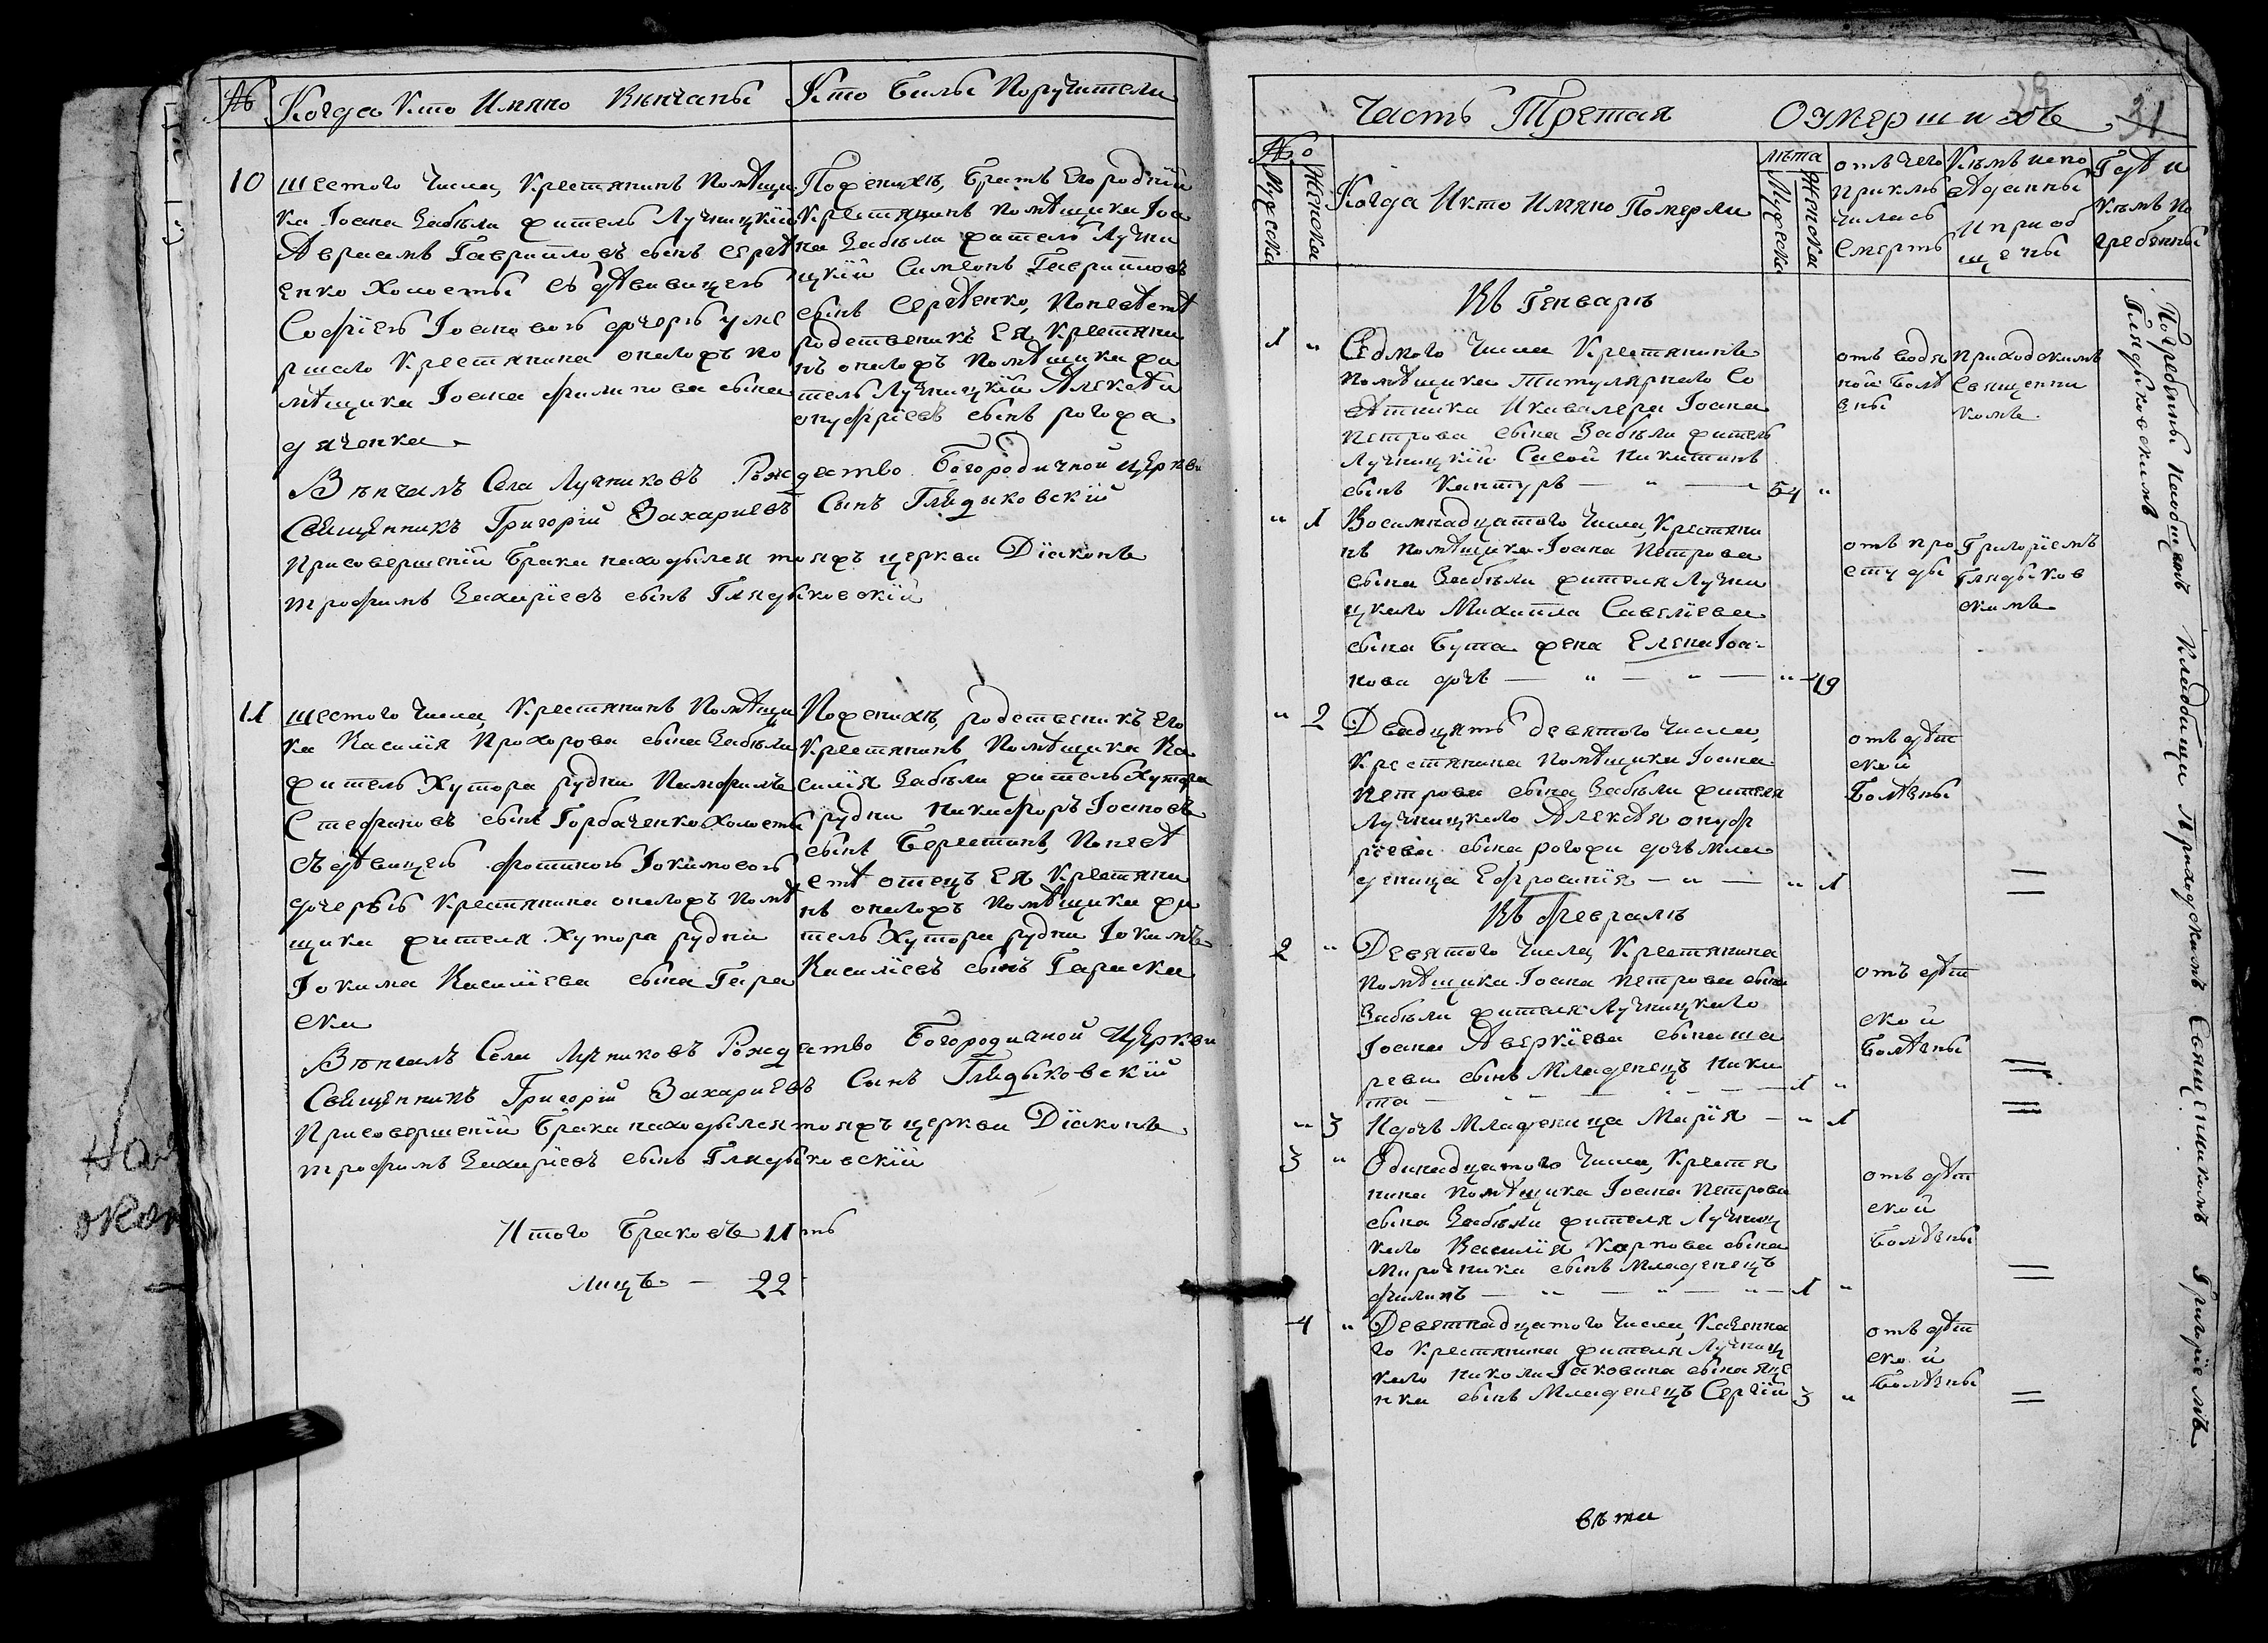 № Когда Кто Имяно Винчаны
Кто Были Поручители
10
шестого Числа, Крестянинъ Помѣщи
ка Іоана Забѣли житель Лучницкій
Авраамъ Гавриловъ сынъ Сергѣ
енко Холостый съ дѣвицею
Софіею Іоановою дочерю уме
ршаго Крестянина оналожъ по
мѣщика Іоана Филипова сына
дяченка
Пожениху, Братъ Его родній
Крестянинъ помѣщика Іоа
на Забѣли житель Лучни
цкій Симеонъ Гавриловъ
сынъ Сергѣенко, Поневѣстѣ
родственикъ Ея Крестяни
нъ оналожъ помѣщика жи
тель Лучницкій Алексѣй
онуфріевъ сынъ рогожа
Вѣнчалъ Села Лучниковъ Рождество Богородичной церкви
Священникъ Григорій Захариевъ Сынъ Глядыковскій
Присовершеніи Брака находылся тояжъ церкви Діаконъ
трофимъ Захаріевъ сынъ Глядыковскій
11
шестого Числа, Крестянинъ Помѣщи
ка Василія Прохорова сына Забѣли
житель Хутора рудни Памфилъ
Стефановъ сынъ Горбаченко Холостый
съ дѣвицею фотиною Іокимовою
дочерью Крестянина оналожъ помѣ
щика жителя Хутора рудни
Іокима Василіева сына Гара
ски
Пожениху, родственикъ Его
Крестянинъ Помѣщика Ва
силія Забѣли житель Хутора
рудни Никифоръ Іоановъ
сынъ Берестянъ, Поневѣ
стѣ отецъ Ея Крестяни
нъ оналожъ помѣщика жи
тель Хутора рудни Іокимъ
Василіевъ сынъ Гараска
Вѣнчалъ Села Лучниковъ Рождество Богородичной Церкви
Священникъ Григорій Захариевъ Сынъ Глядыковскій
Присовершеніи Брака находылся тояжъ церкви Діаконъ
трофимъ Захаріевъ сынъ Глядыковскій
Итого Браковъ 11ть
лицъ — 22
29
31
Часть Третая Оумершихъ
№о
Мужеска
Женска
Когда Икто Имяно Померли
лѣта
Мужеска
Женска
отъ чего
приклю
чилась
Смерть
Кѣмъ испо
вѣданны
И приоб
щены
Гдѣ и
кѣмъ по
гребенны
Въ Генварѣ
1 „ Седмого Числа Крестянинъ
помѣщика Титулярнаго Со
вѣтника Икавалера Іоана
Петрова сына Забѣли житель
Лучницкій Савой Никитинъ
сынъ Кантуръ — „ — 54 „
отъ водя
ной Болѣ
зны
приходскимъ
Священни
комъ
„ 1 Восемнадцатого Числа, Крестяни
нъ помѣщика Іоана Петрова
сына Забѣли жителя Лучни
цкаго Михаила Савеліева
сына Бута жена Елена Іоа-
нова дочь — „ — „ — „ 49
отъ про
студы
Григоріемъ
Глядыков
скимъ
„ 2 Двадцять девятого Числа,
Крестянина помѣщика Іоана
Петрова сына Забѣли жителя
Лучницкаго Алексѣя онуф
ріева сына рогожи дочь мла
деница Ефросинія — „ — „ 1
отъ дѣт
ской
Болѣзны
=
Въ Февралѣ
2 „ Девятого Числа, Крестянина
помѣщика Іоана Петрова сына
Забѣли жителя Лучницкаго
Іоана Аверкіева сына ша
рева сынъ Младенецъ Ники
та — 1 „
отъ дѣт
ской
Болѣзны
=
„ 3 Идочь Младеница Марія — „ 1
=
3 „ Одинадцатого Числа, Крестя
нина помѣщика Іоана Петрова
сына Забѣли жителя Лучниц
каго Василія Карпова сына
Мирочника сынъ Младенецъ
филипъ — „ — „ — „ — 1 „
отъ дѣт
ской
Болѣзны
=
4 „ Деветнадцатого Числа, Казенна
го Крестянина жителя Лучниц
каго Николи Іаковина сына яце
нка сынъ Младенецъ Сергій 3 „
отъ дѣт
ской
Болѣзны
=
Погребены Наобщомъ Кладбищи Приходскимъ Священникомъ Григоріемъ
Глядыковскимъ